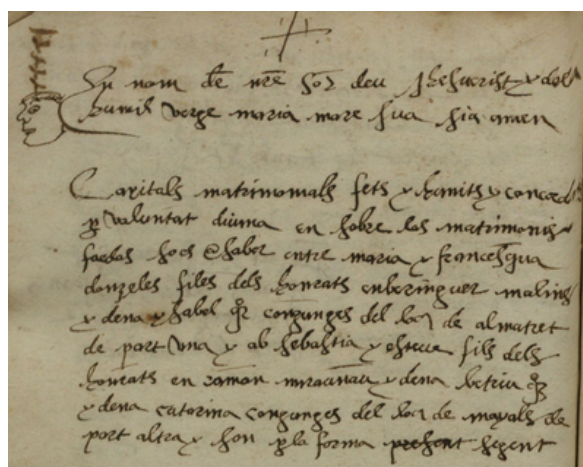 En nom de nre Sor deu Jhesucrist y de la
humil verge maria mare sua sia amen
Capitols matrimonials fets y hamits y concord
p voluntat diuina en sobre los matrimonis
faedos hoes e haber entre maria y francesqua
donzeles files dels honrats enberinguer
y dena ysabel qz conjunges del loc de almatret
de part una y ab sebastia y esteue fils dels
honrats en ramon y dena qz
y dena catorina conjunges del loc de mayals de
part altra y son p la forma present segent